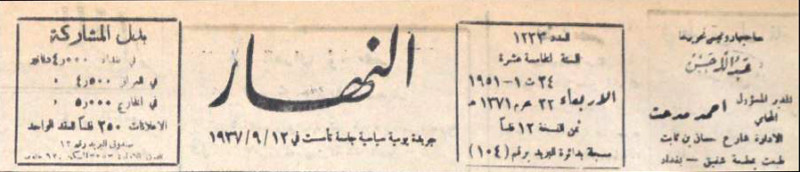 صاحبها ورئيس تحريرها
عبد الله حسن
المدير المسؤول
المحامي احمد مدحت
الادارة شارع حسان بن ثابت
طبعت بمطبعة شفيق – بغداد
العدد ١٢٢٣
السنة الخامسة عشرة
٢٤ ت ١ - ١٩٥١
الاربعاء ٢٢ محرم ١٣٧١ هـ
ثمن النسخة ١٢ فلساً
مسجلة بدائرة البريد برقم (١٠٤)
النهار
جريدة يومية سياسية جامعة تأسست في ١٩٣٧/٩/١٢
بدل المشاركة
في بغداد ٠٠٠ر٤ دنانير
في العراق ٥٠٠ر٤
في الخارج ٠٠٠ر٥
الاعلانات ٢٥٠ فلساً للعقد الواحد
صندوق البريد رقم ١٢